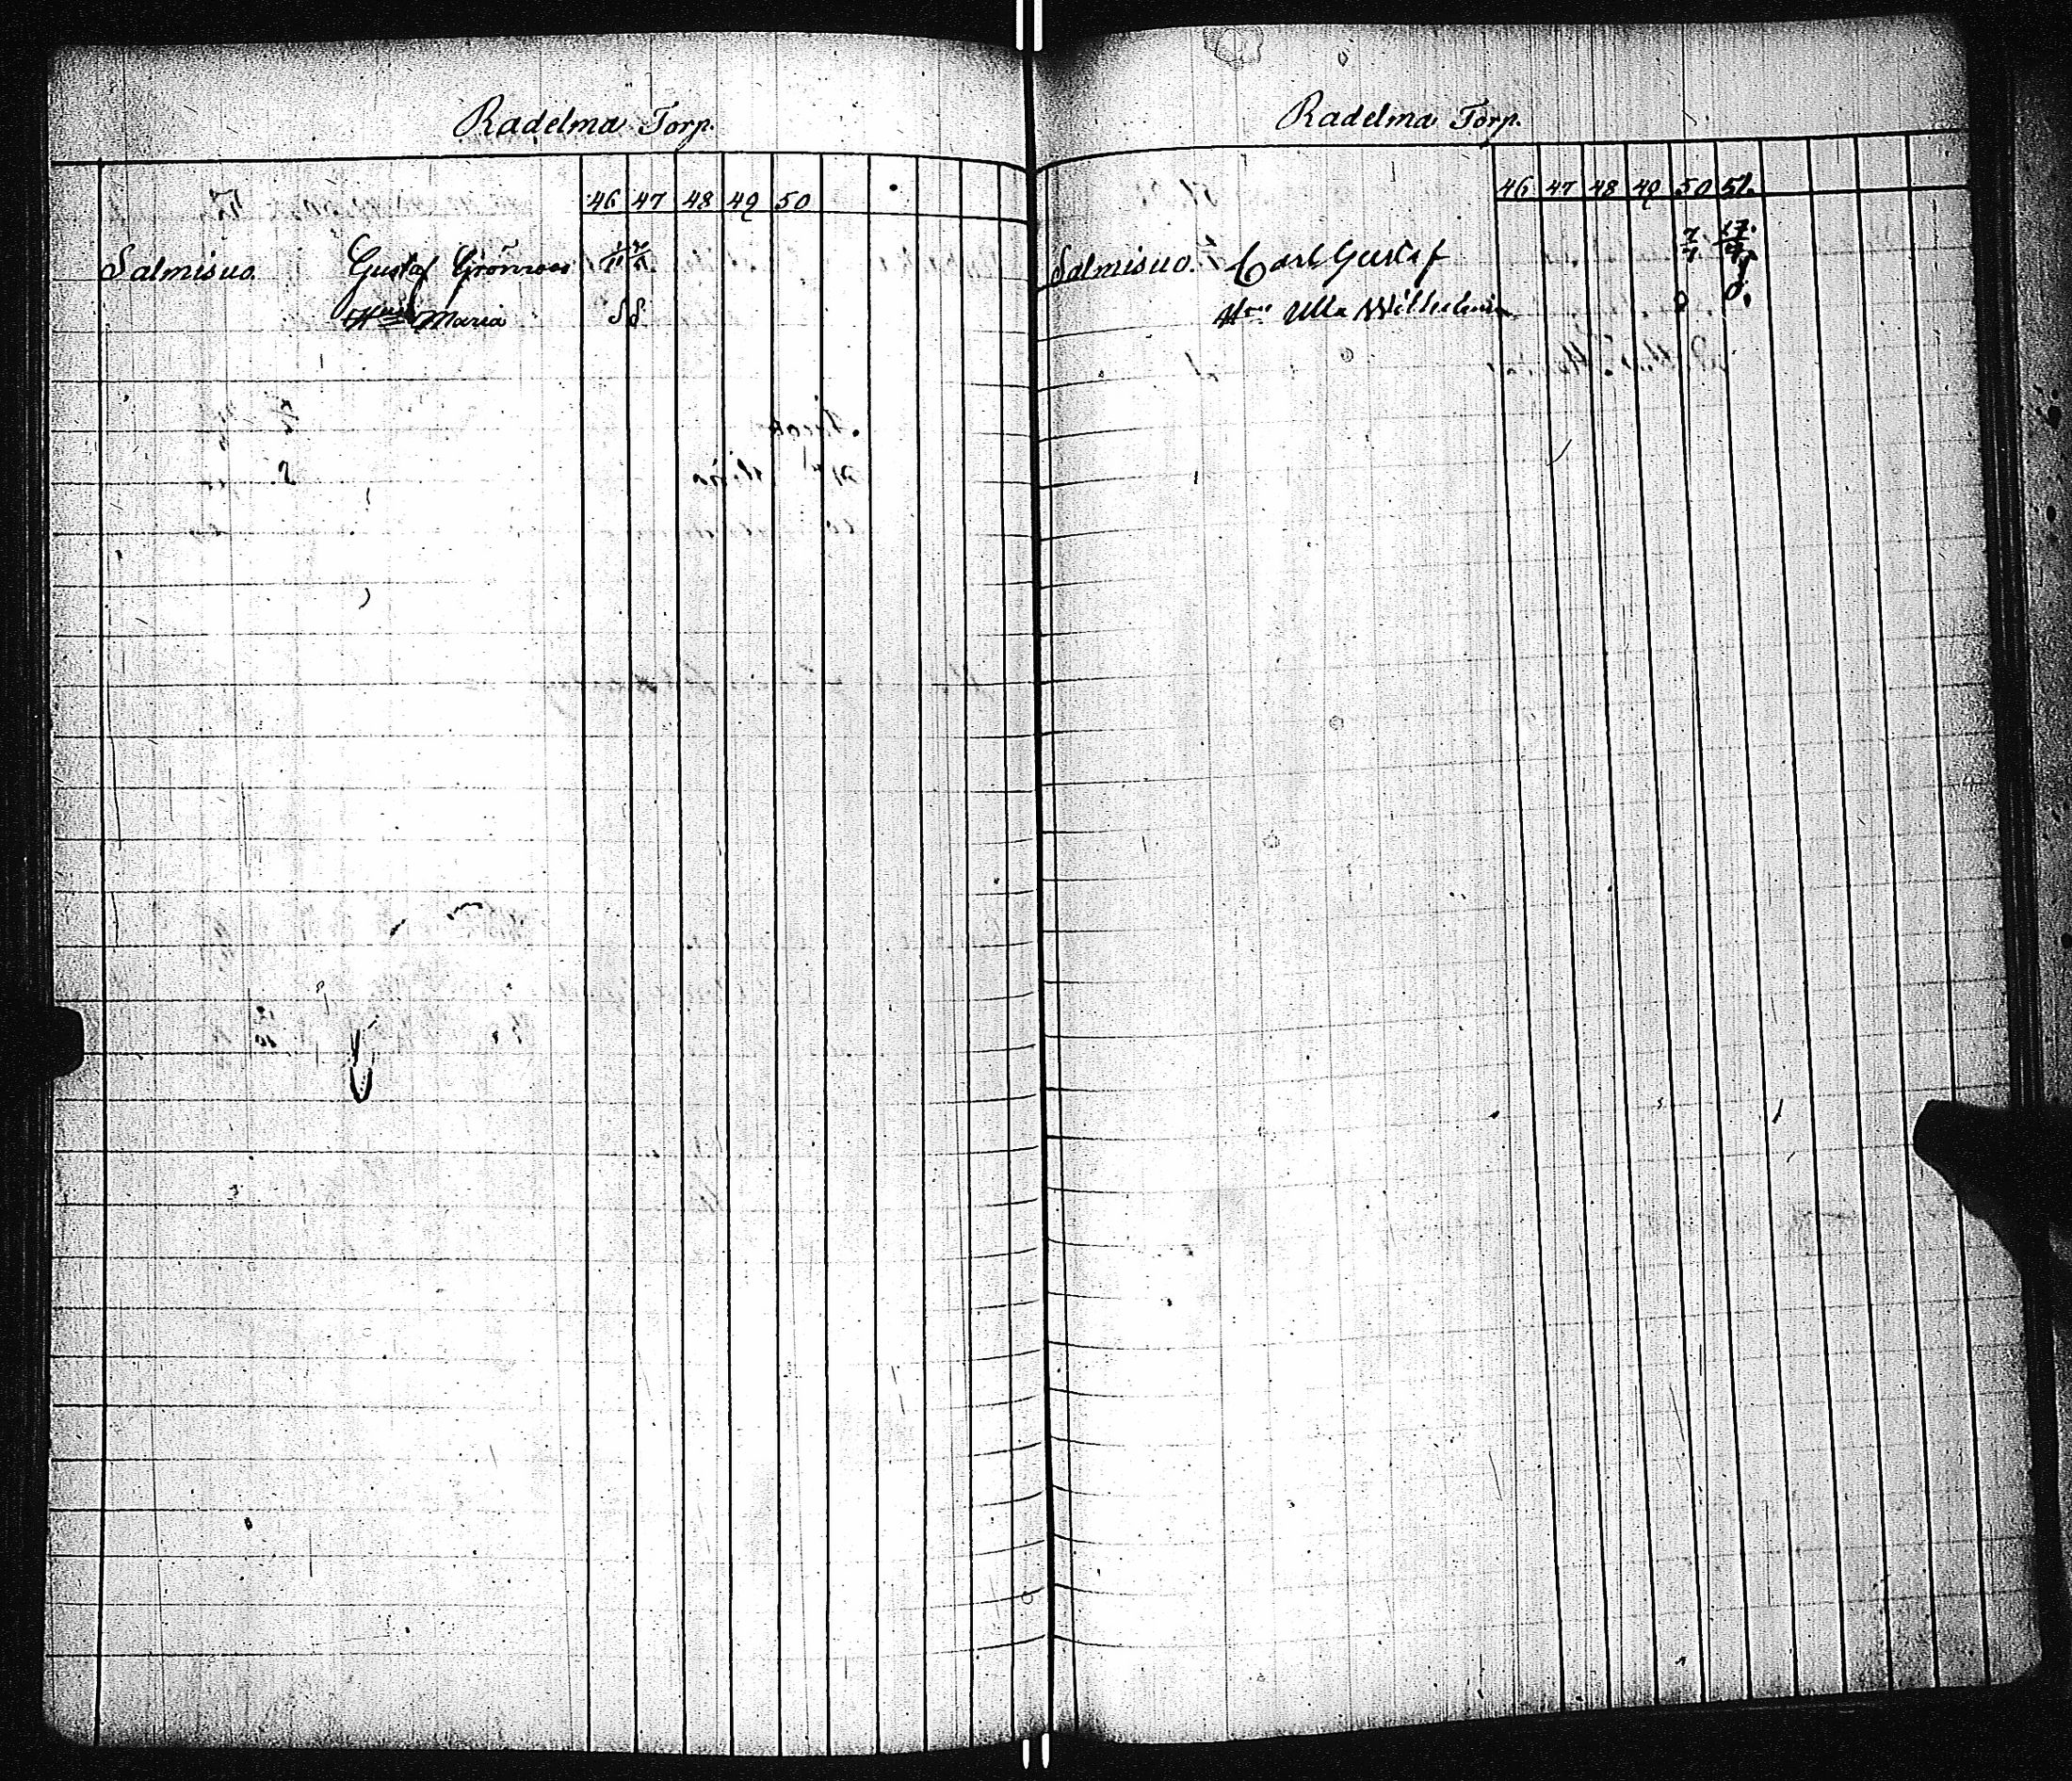 Radelma Torp.
46 47 48 49 50
Salmisuo. Gustaf Grönroos
Maria
Radelma Torp.
46 47 48 49 50 51.
Salmisuo. Carl Gustaf 7/7
Hru Ulla Wilhelmina